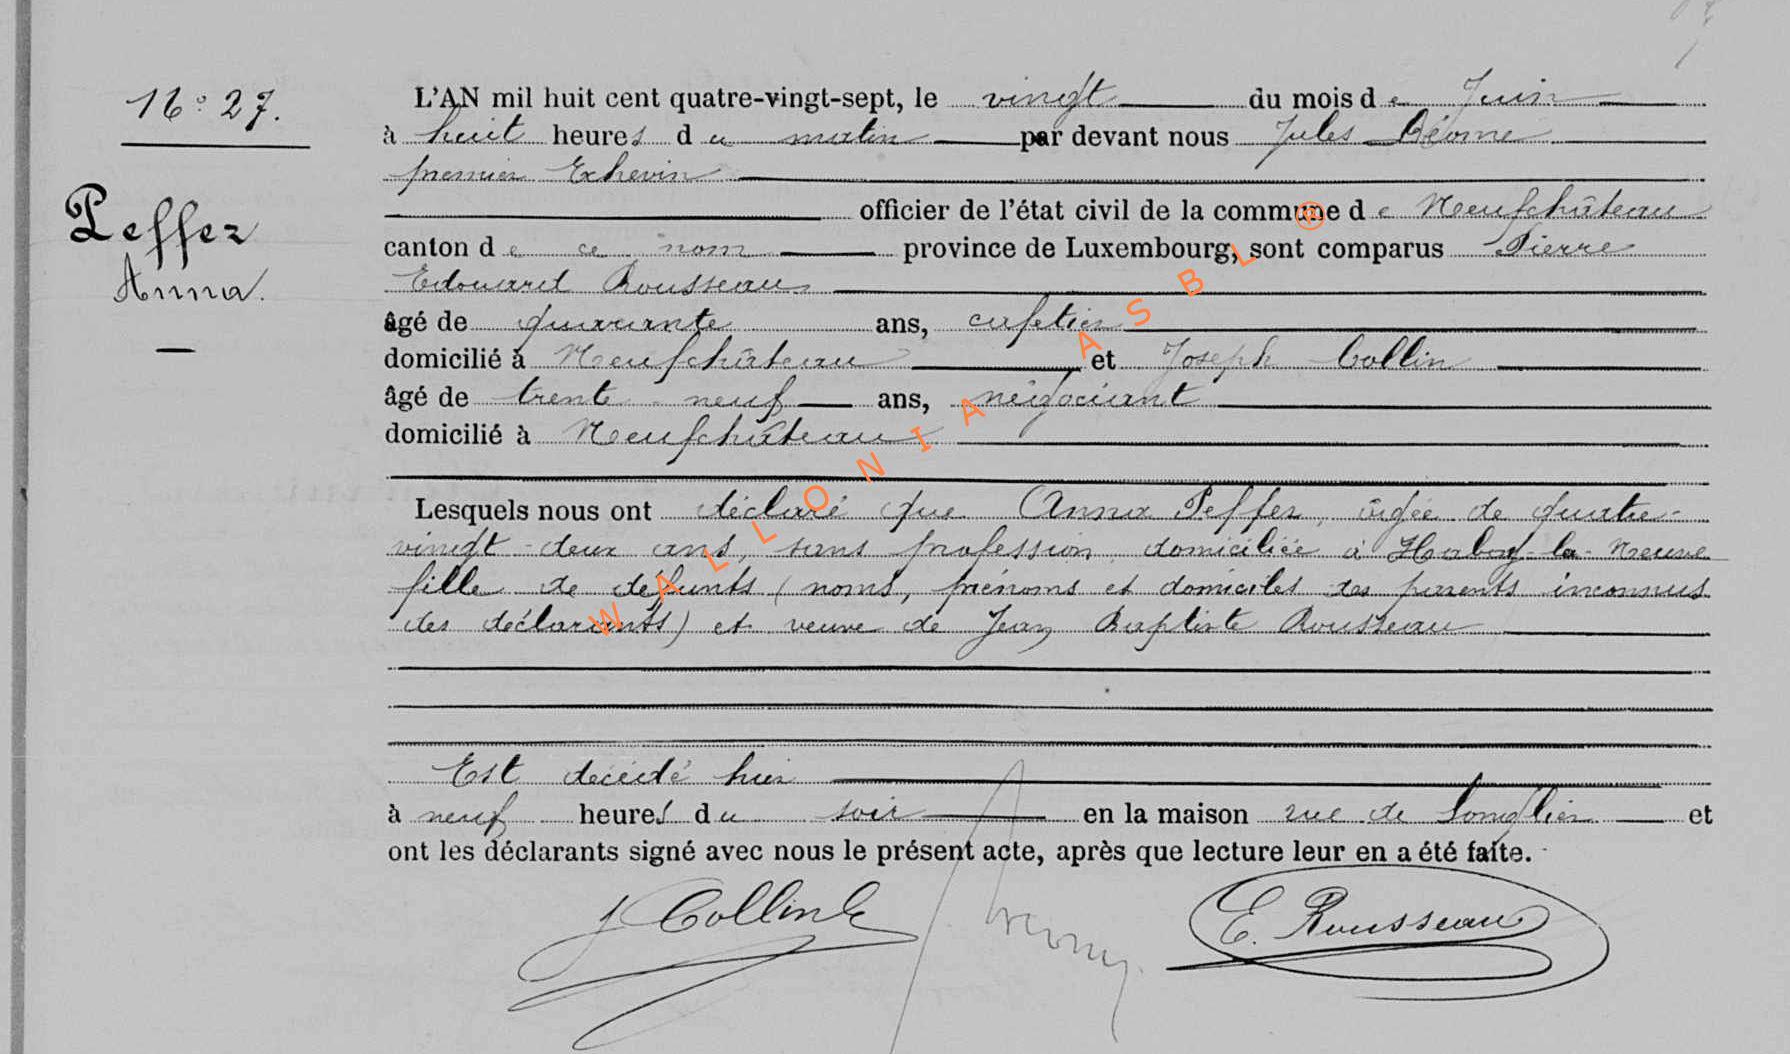 N° 27.
Peffer
Anna.
L'AN mil huit cent quatre-vingt-sept, le vingt du mois de Juin
à huit heures du matin par devant nous Jules
premier Echevin
officier de l'état civil de la commune de Neufchâteau
canton de ce nom province de Luxembourg, sont comparus Pierre
Edouard Rousseau
âgé de quarante ans, cafetier
domicilié à Neufchâteau et Joseph Collin
âgé de trente-neuf ans, négociant
domicilié à Neufchâteau
Lesquels nous ont déclaré que Anna Peffer, âgée de quatre-
vingt-deux ans, sans profession domiciliée à Habay-la-Neuve
fille de défunts (noms, prénoms et domiciles des parents inconnus
des déclarants) et veuve de Jean Baptiste Rousseau
Est décédé hier
à neuf heures du soir en la maison rue de Longlier et
ont les déclarants signé avec nous le présent acte, après que lecture leur en a été faite.
J Collin E. Rousseau
WALLONIA ASBL ®